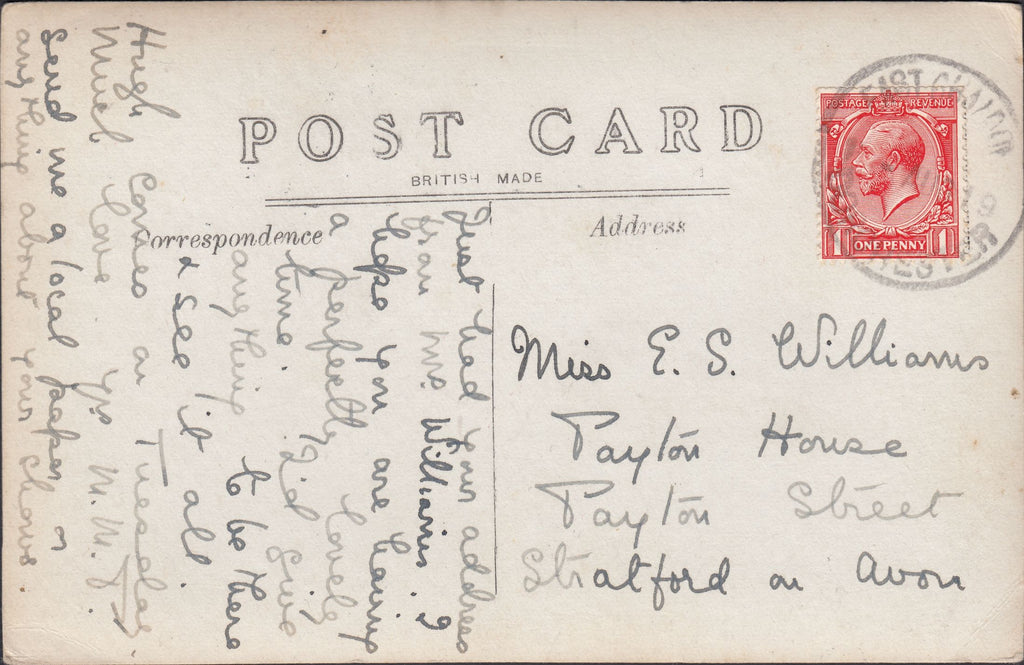 POST CARD
BRITISH MADE
Correspondence
Address
POSTAGE REVENUE
1 ONE PENNY 1
Miss E. S. Williams
Payton House
Payton Street
Stratford on Avon
Just had your address
from Mrs. Williams. I
hope you are having
a perfectly lovely
time. I'd give
anything to be there
& see it all.
Hugh comes on Tuesday
Much love Yrs M.M.
Send me a local paper or
anything about your shows